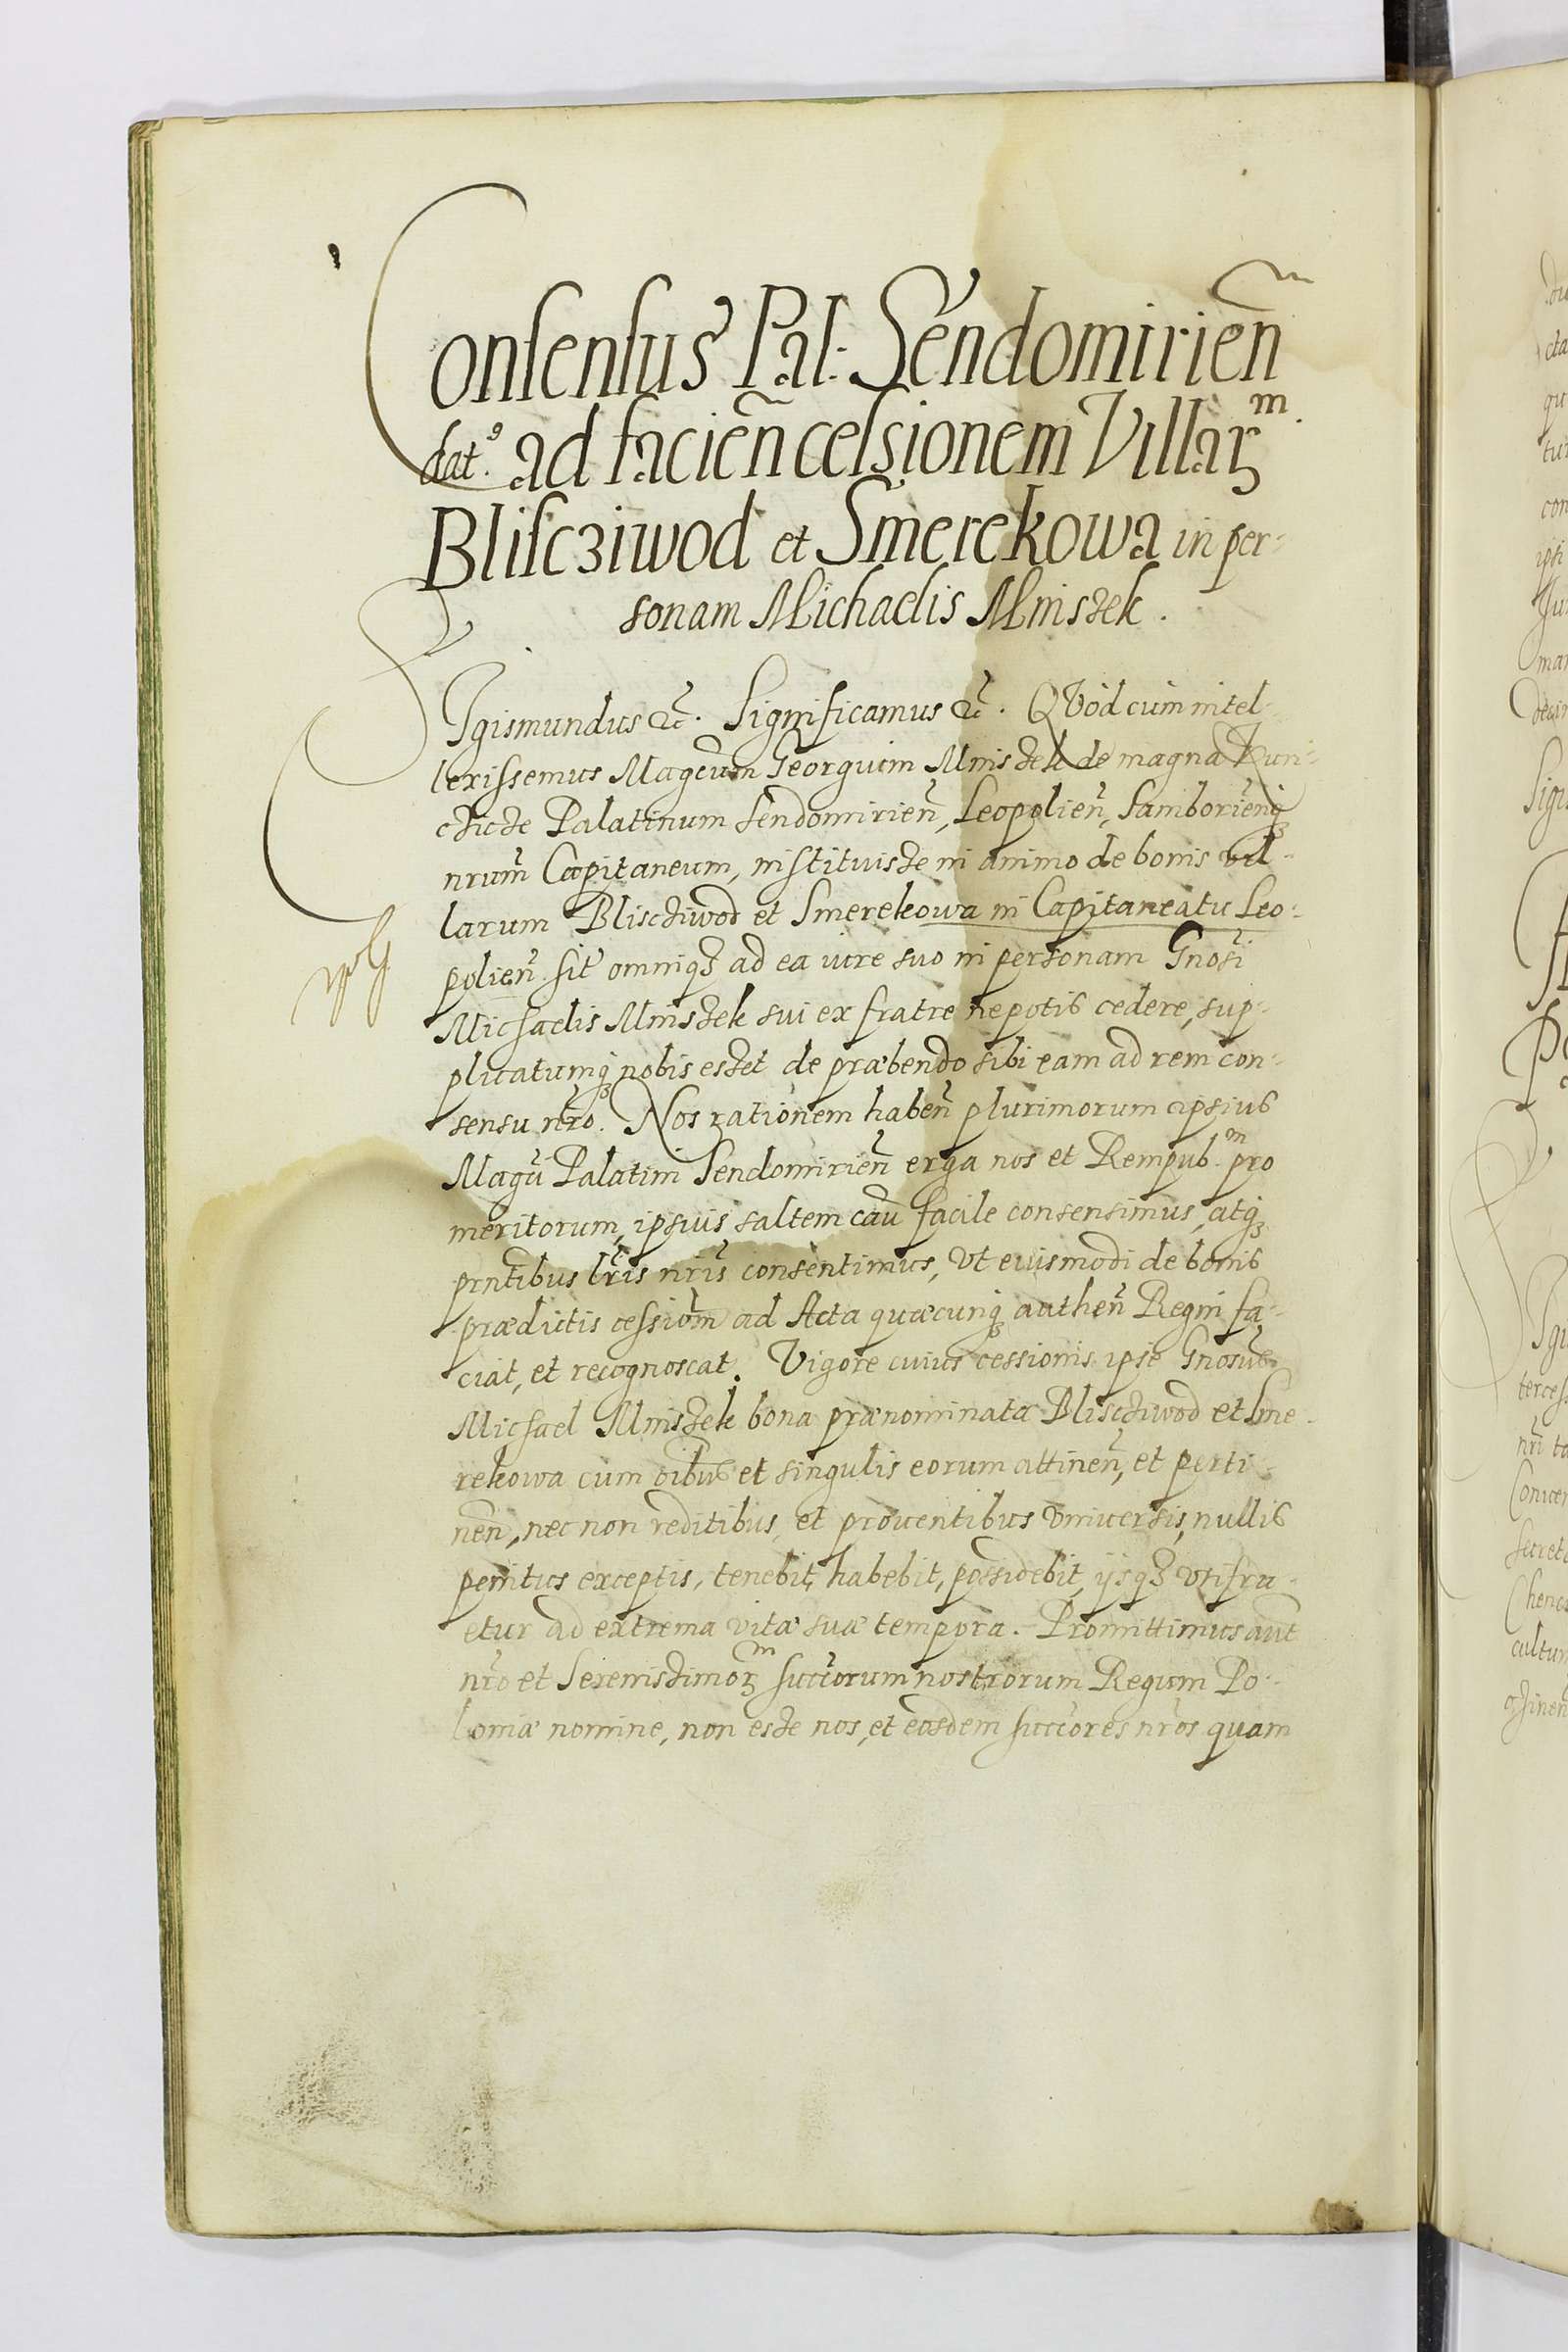 Consensus Pal: Sendomirien̄
dat⁹. ad facien̄ cessionem Villarꝫ m
Blisczіwod et Smerekowa in per-
sonam Michaelis Mniszek.
SIgismundus &c̃. Significamus &c̃. QVòd cùm intel-
lexissemus Magcum̃ Georgium Mniszek de magna Kun-
czicze Palatinum Sendomirien̄, Leopolien̄, Samborien̄qꝫ
nrum̃ Capitaneum, instituisse in animo de bonis vil-
larum Blisczіwod et Smerekowa in Capitaneatu Leo-
polien̄ sit̃ omniqꝫ ad ea iure suo in personam Gnosĩ
Michaelis Mniszek sui ex fratre nepotis cedere, sup-
plicatumqꝫ nobis esset de præbendo sibi eam ad rem con-
sensu nr̃o. Nos rationem haben̄ plurimorum ipsius
Magcĩ Palatini Sendomirien̄ erga nos et Rempub.m pro
meritorum, ipsius saltem cau̇ facile consensimus, atqꝫ
pn̄tibus lr̃is nr̃is consentimus, Vt eiusmodi de bonis
prædictis cessiom̃ ad Acta quæcunqꝫ authen̄ Regni fa-
ciat, et recognoscat. Vigore cuius cessionis ipse Gnosus̃
Michael Mniszek bona prænominata Blisczіwod et Sme-
rekowa cum oībus et singulis eorum attinen̄, et perti-
nen̄, nec non reditibus, et prouentibus vniuersis, nullis
penitus exceptis, tenebit, habebit, possidebit, ijsqꝫ vtifru-
etur ad extrema vitæ suæ tempora. Promittimus aūt
nr̃o et Serenissimorꝫ m succorum̃ nostrorum Regum Po-
loniæ nomine, non esse nos, et eosdem succores̃ nr̃os quam